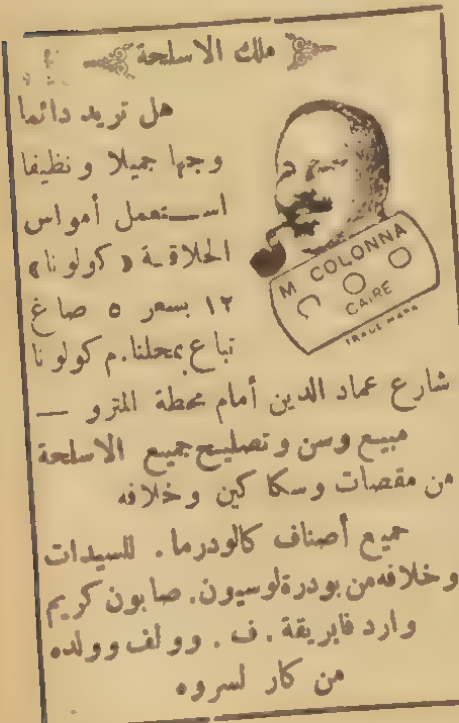 ملك الاسلحة
هل تريد دائما
وجها جميلا و نظيفا
استعمل أمواس
الحلاقة « كولونا »
١٢ بسعر ٥ صاغ
تباع بمحلنا . م كولونا
M COLONNA
CAIRE
TRADE MARK
شارع عماد الدين أمام محطة المترو —
مبيع وسن و تصليح جميع الاسلحة
من مقصات وسكاكين وخلافه
جميع أصناف كالودرما . للسيدات
وخلافه من بودرة لوسيون . صابون كريم
وارد فابريقة . ف . وولف وولده
من كار لسروه